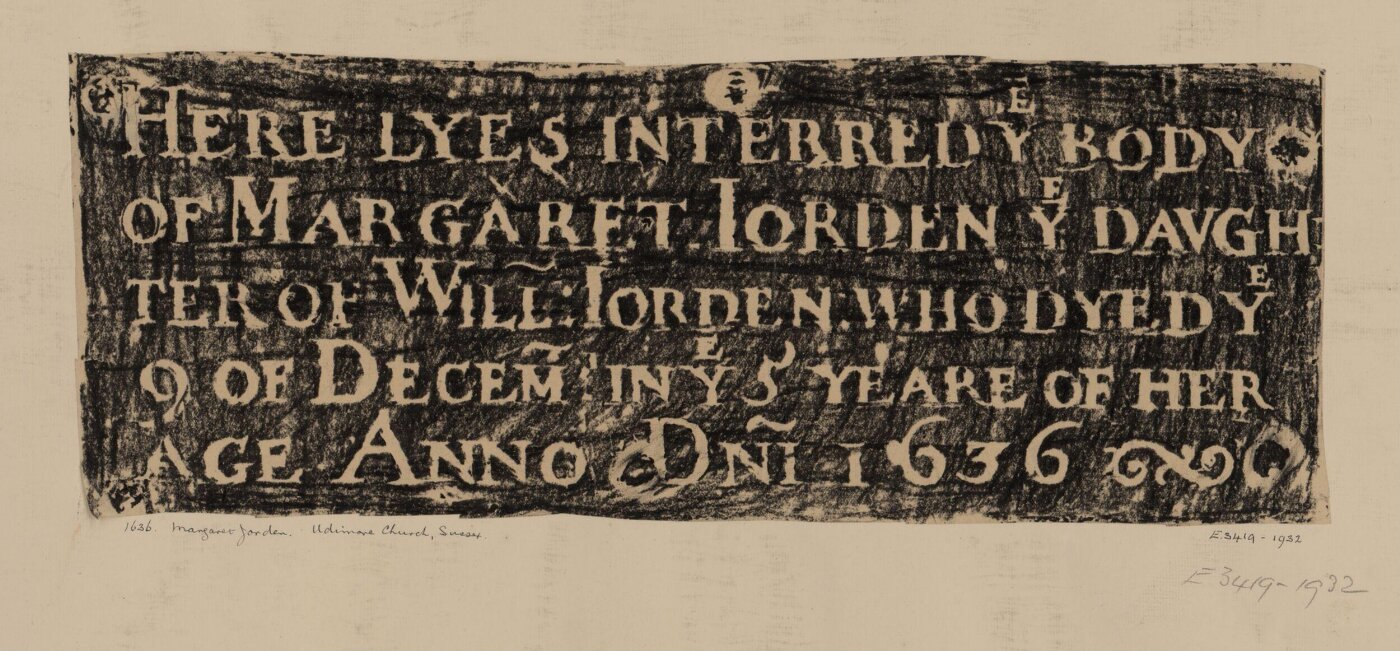 HERE LYES INTERRED Yᴱ BODY
OF MARGARET IORDEN Yᴱ DAVGH
TER OF WILL̃: IORDEN. WHO DYED Yᴱ
9 OF DECEM̃: IN Yᴱ 5 YEARE OF HER
AGE ANNO DÑI 1636
1636. Margaret Jorden. Udimore Church, Sussex.
E.3419-1932
E3419-1932